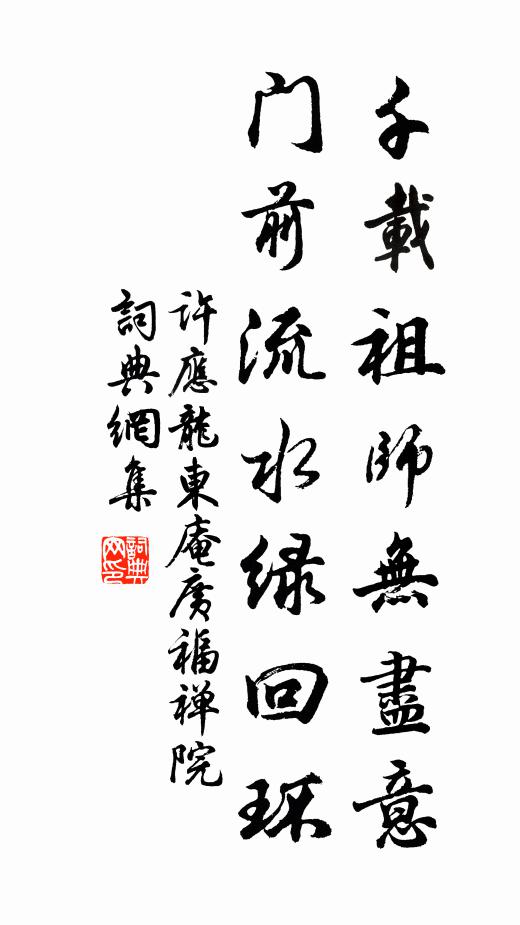 千載祖師無盡意
門前流水緑回環
許應龍東庵廣福禅院
詞典網集
詞典網印